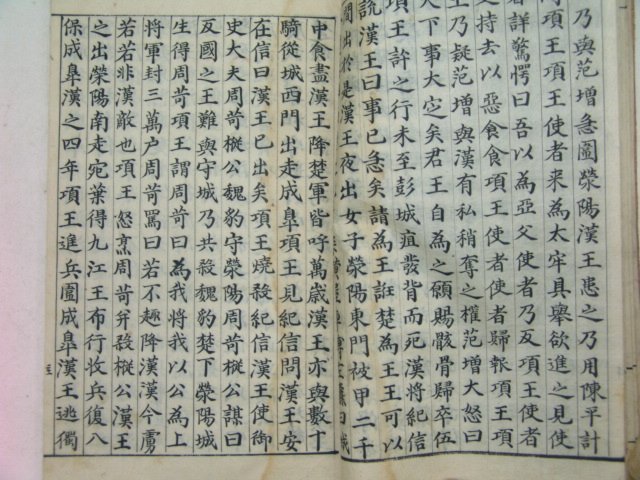 乃與范增急圍滎陽漢王患之乃用陳平計
項王項王使者来為太牢具舉欲進之見使
者詳驚愕曰吾以為亞父使者乃反項王使者
持去以惡食食項王使者使者歸報項王項
王乃疑范增與漢有私稍奪之權范增大怒曰
天下事大定矣君王自為之願賜骸骨歸卒伍
項王許之行未至彭城疽發背而死漢將紀信
說漢王曰事已急矣請為王誑楚為王王可以
間出於是漢王夜出女子滎陽東門被甲二千
黃屋車傅左纛曰城
中食盡漢王降楚軍皆呼萬歳漢王亦與數十
騎從城西門出走成皐項王見紀信問漢王安
在信曰漢王已出矣項王燒殺紀信漢王使御
史大夫周苛樅公魏豹守滎陽周苛樅公謀曰
反國之王難與守城乃共殺魏豹楚下滎陽城
生得周苛項王謂周苛曰為我將我以公為上
將軍封三萬户周苛罵曰若不趣降漢漢今虜
若若非漢敵也項王怒烹周苛并殺樅公漢王
之出滎陽南走宛葉得九江王布行收兵復入
保成皐漢之四年項王進兵圍成皐漢王逃獨